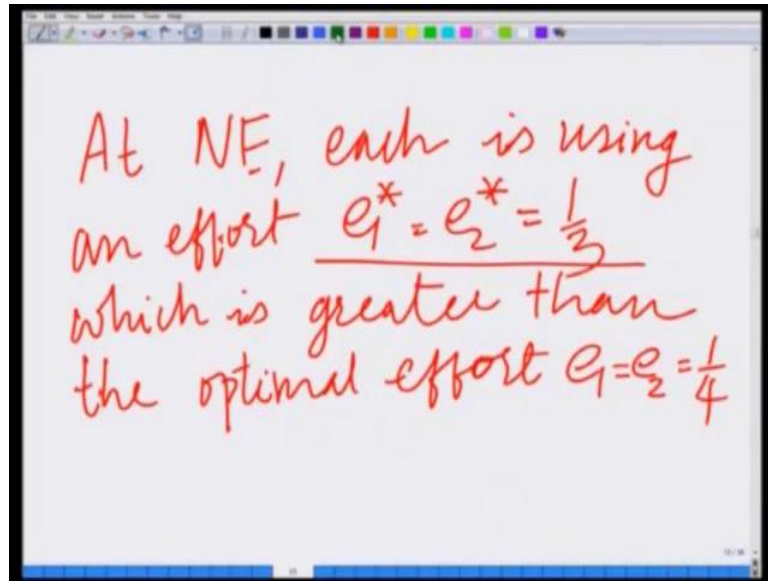 At NE, each is using
an effort e₁* = e₂* = 1/3
which is greater than
the optimal effort e₁ = e₂ = 1/4